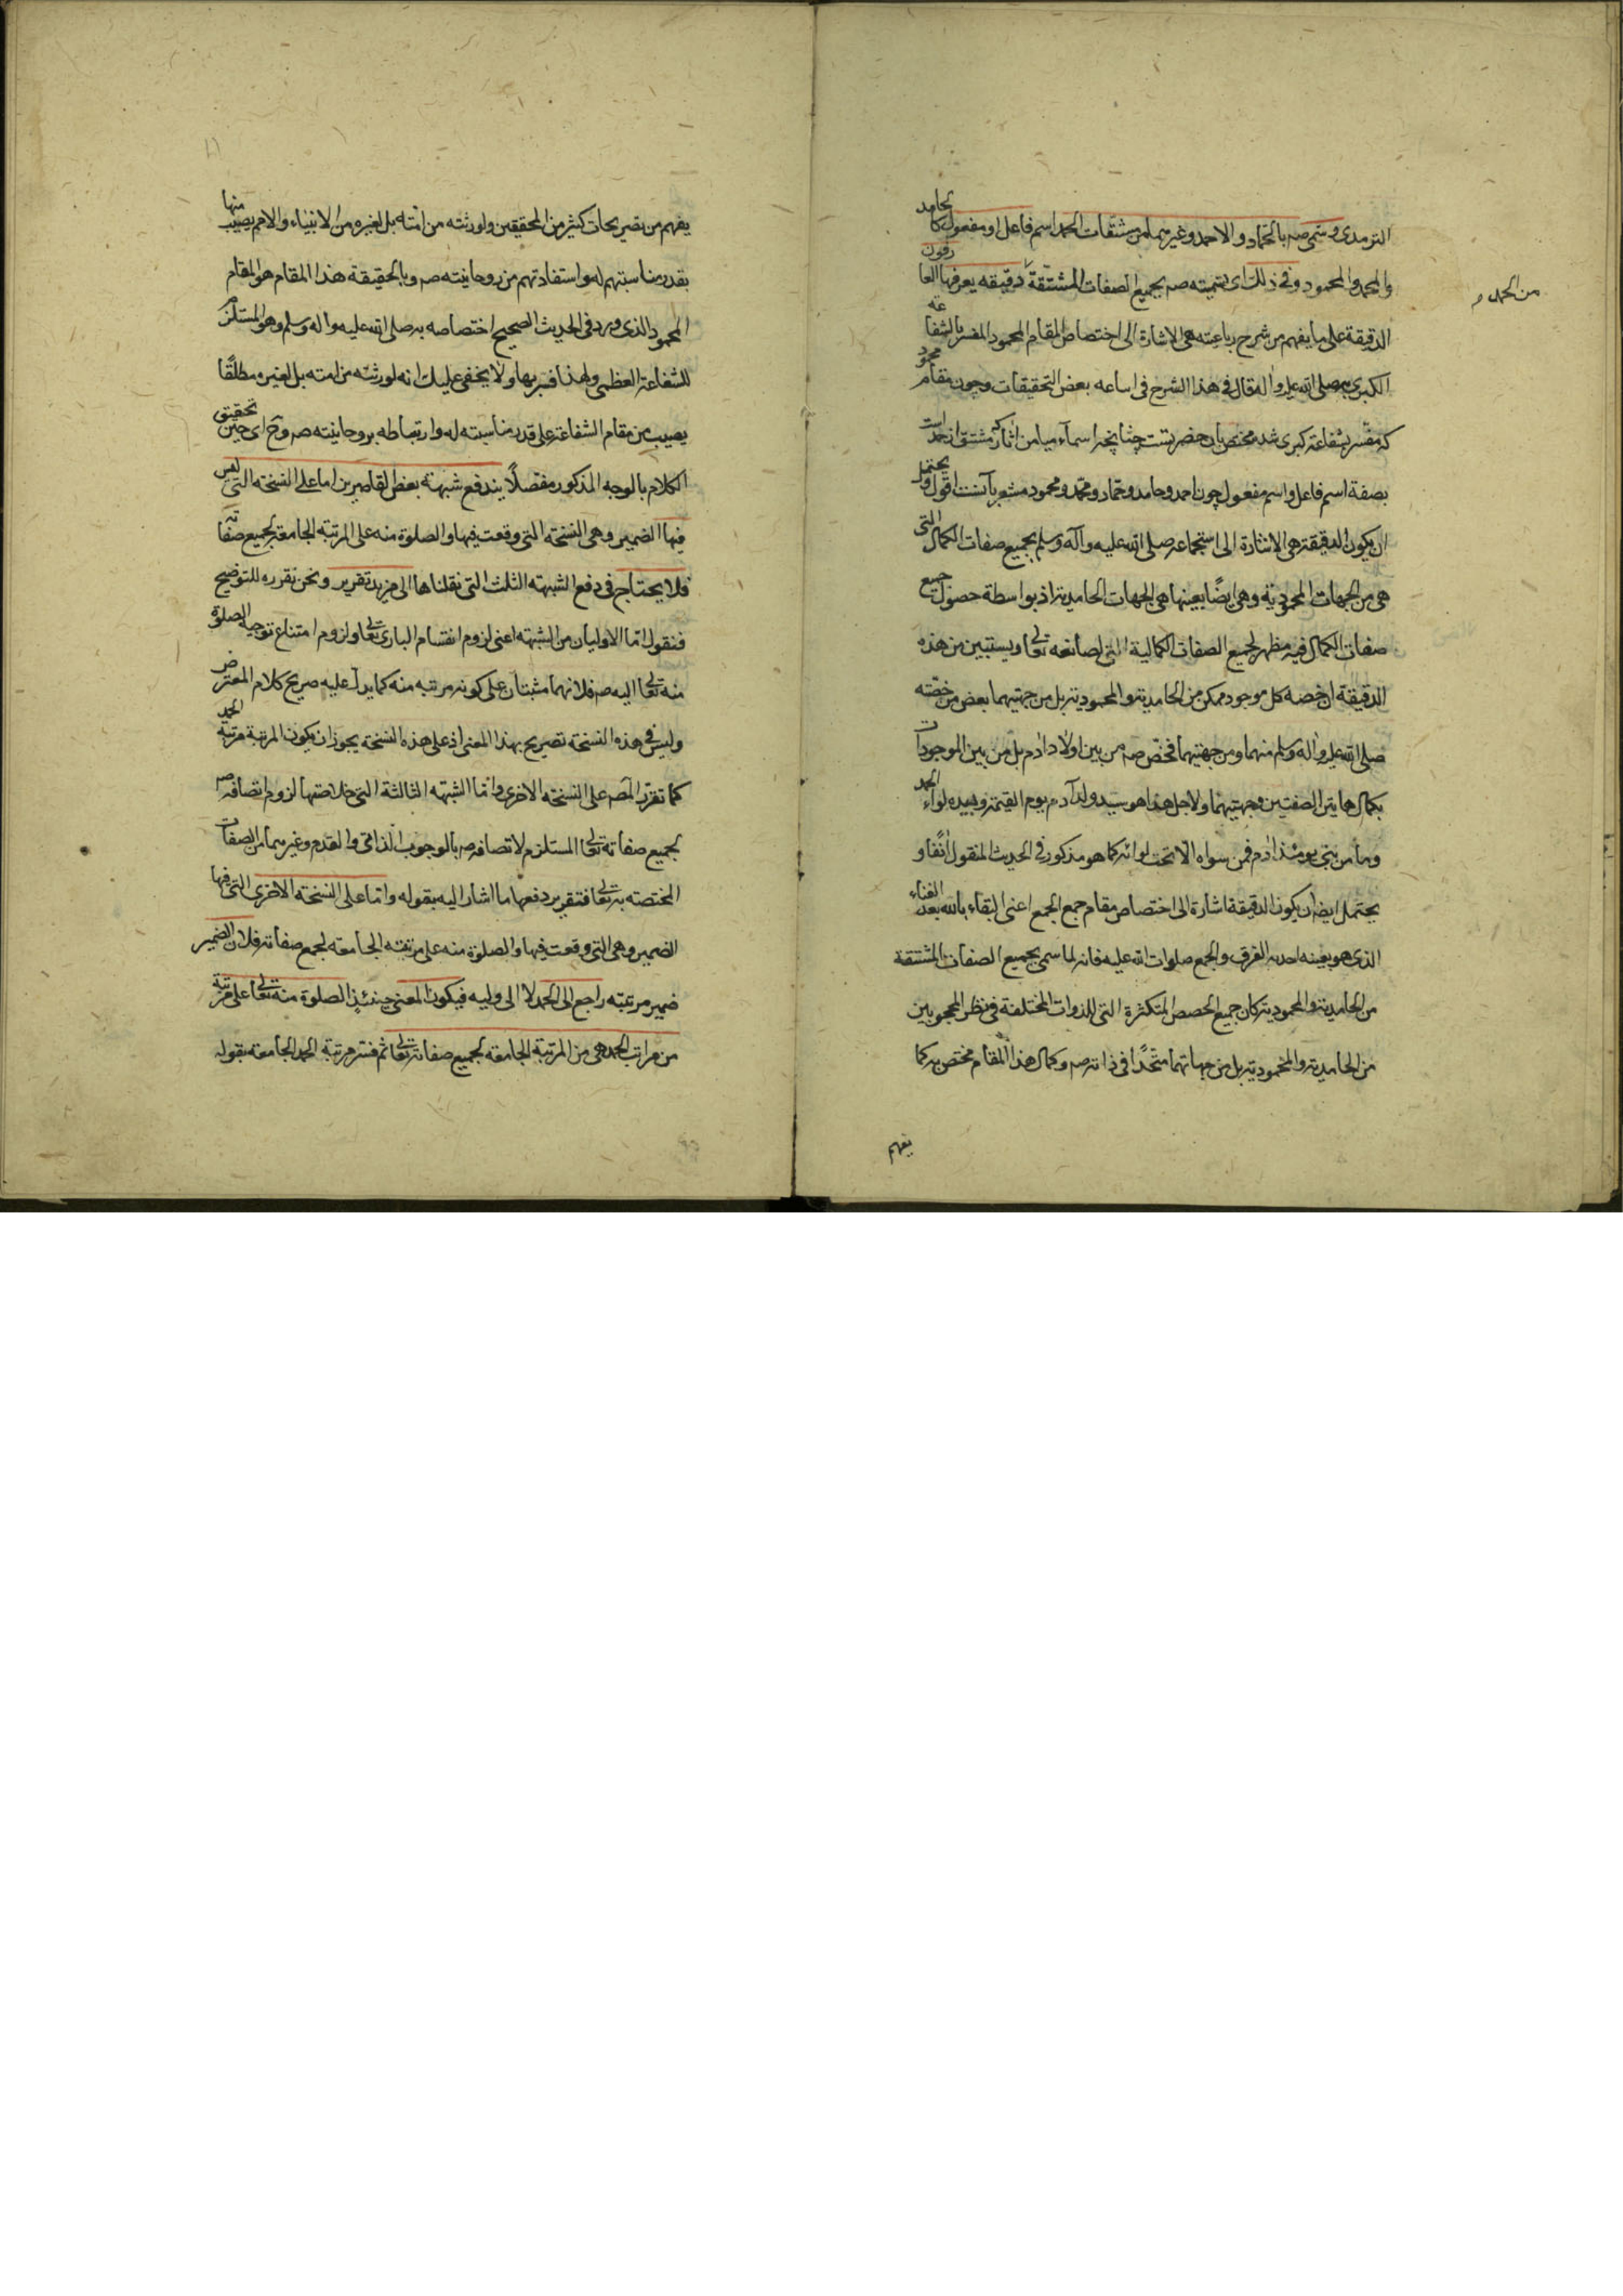 الترمذى وسمى صه بالحماد والاحمد وغيرهما من مشتقات الحمد اسم فاعل او مفعول كالحامد
والمحمد والمحمود وفى ذلك اى تسميته صه بجميع الصفات المشتقة دقيقه يعرفها العارفون
من الحمد
الدقيقة على ما يفهم من شرح رباعيته هى الاشارة الى اختصاص المقام المحمود المفسر بالشفاعة
الكبرى به صلى الله عليه واله قال فى هذا الشرح فى اساعه بعض التحقيقات وچون مقام محمود
كه مفسر بشفاعة كبرى شد مختص بان حضرتست چنانچه اسماء ميامن اثار كه مشتق از حمد است
بصفة اسم فاعل واسم مفعول چون احمد وحامد وحماد ومحمد ومحمود مشعر بآنست اقول ويحتمل
ان يكون الدقيقة هى الاشارة الى استجماعه صلى الله عليه وآله وسلم بجميع صفات الكمال التى
هى من الجهات المحمودية وهى ايضًا بعينها هى الجهات الحامدية اذ بواسطة حصول جميع
صفات الكمال فيه مظهر لجميع الصفات الكمالية التى لصانعه تعالى ويستبين من هذه
الدقيقة ان خصة كل موجود ممكن من الحامدية والمحمودية بل من جهتيهما بعض من خصته
صلى الله عليه واله وسلم منهما ومن جهتيهما فخص صه من بين اولاد ادم بل من بين الموجودات
بكمال هاتين الصفتين وجهتيهما ولاجل هذا هو سيد ولد آدم يوم القيمة وبيده لواء الحمد
وما من نبى يومئذ ادم فمن سواه الا تحت لوائه كما هو مذكور فى الحديث المنقول انفًا و
يحتمل ايضا ان يكون الدقيقة اشارة الى اختصاص مقام جمع الجمع اعنى البقاء بالله بعد الفناء
الذى هو بعينه احديه الفرق والجمع صلوات الله عليه فانه لما سمى بجميع الصفات المشتقة
من الحامدية والمحمودية كان جميع الحصص المتكثرة التى للذوات المختلفة فى نظر المحجوبين
من الحامدية والمحمودية بل من جهاتهما متحدًا فى ذاته صه وكمال هذا المقام مختص به كما
يفهم
يفهم من تصريحات كثير من المحققين ولورثته من امته بل لغيره من الانبياء والامم نصيب منها
بقدر مناسبتهم له واستفادتهم من روحانيته صه وبالحقيقة هذا المقام هو المقام
المحمود الذى ورد فى الحديث الصحيح اختصاصه به صلى الله عليه واله وسلم وهو المستلزم
للشفاعة العظمى ولهذا فسر بها ولا يخفى عليك انه لورثته من امته بل لغيره مطلقًا
نصيب من مقام الشفاعة على قدر مناسبته له وارتباطه بروحانيته صه وح اى حين تحقيق
الكلام بالوجه المذكور مفصلًا يندفع شبهة بعض القاصرين اما على النسخه التى ليس
فيها الضمير وهى النسخه التى وقعت فيها والصلوة منه على المرتبه الجامعة لجميع صفاته
فلا يحتاج فى دفع الشبهه الثلث التى نقلناها الى مزيد تقرير ونحن نقرره للتوضيح
فنقول اما الاوليان من الشبهه اعنى لزوم انقسام البارى تعالى ولزوم امتناع توجيه الصلوة
منه تعالى اليه صه فلانهما مثبتان على كونه مرتبه منه كما يدل عليه صريح كلام المعترض
وليس فى هذه النسخة تصريح بهذا المعنى اذ على هذه النسخة يجوز ان يكون المرتبة مرتبة الحمد
كما تقرر المصه على النسخه الاخرى واما الشبهه الثالثة التى خلاصتها لزوم اتصافه صه
بجميع صفاته تعالى المستلزم لاتصافه صه بالوجوب الذاتى والقدم وغيرهما من الصفات
المختصه به تعالى فتقرير دفعها ما اشار اليه بقوله واما على النسخه الاخرى التى فيها
الضمير وهى التى وقعت فيها والصلوة منه على مرتبته الجامعه لجمع صفاته فلان الضمير
ضمير مرتبته راجع الى الحمد لا الى وليه فيكون المعنى حينئذ الصلوة منه تعالى على مرتبة
من مراتب الحمد هى من المرتبة الجامعه لجميع صفاته تعالى ثم فسر مرتبة الحمد الجامعه بقوله